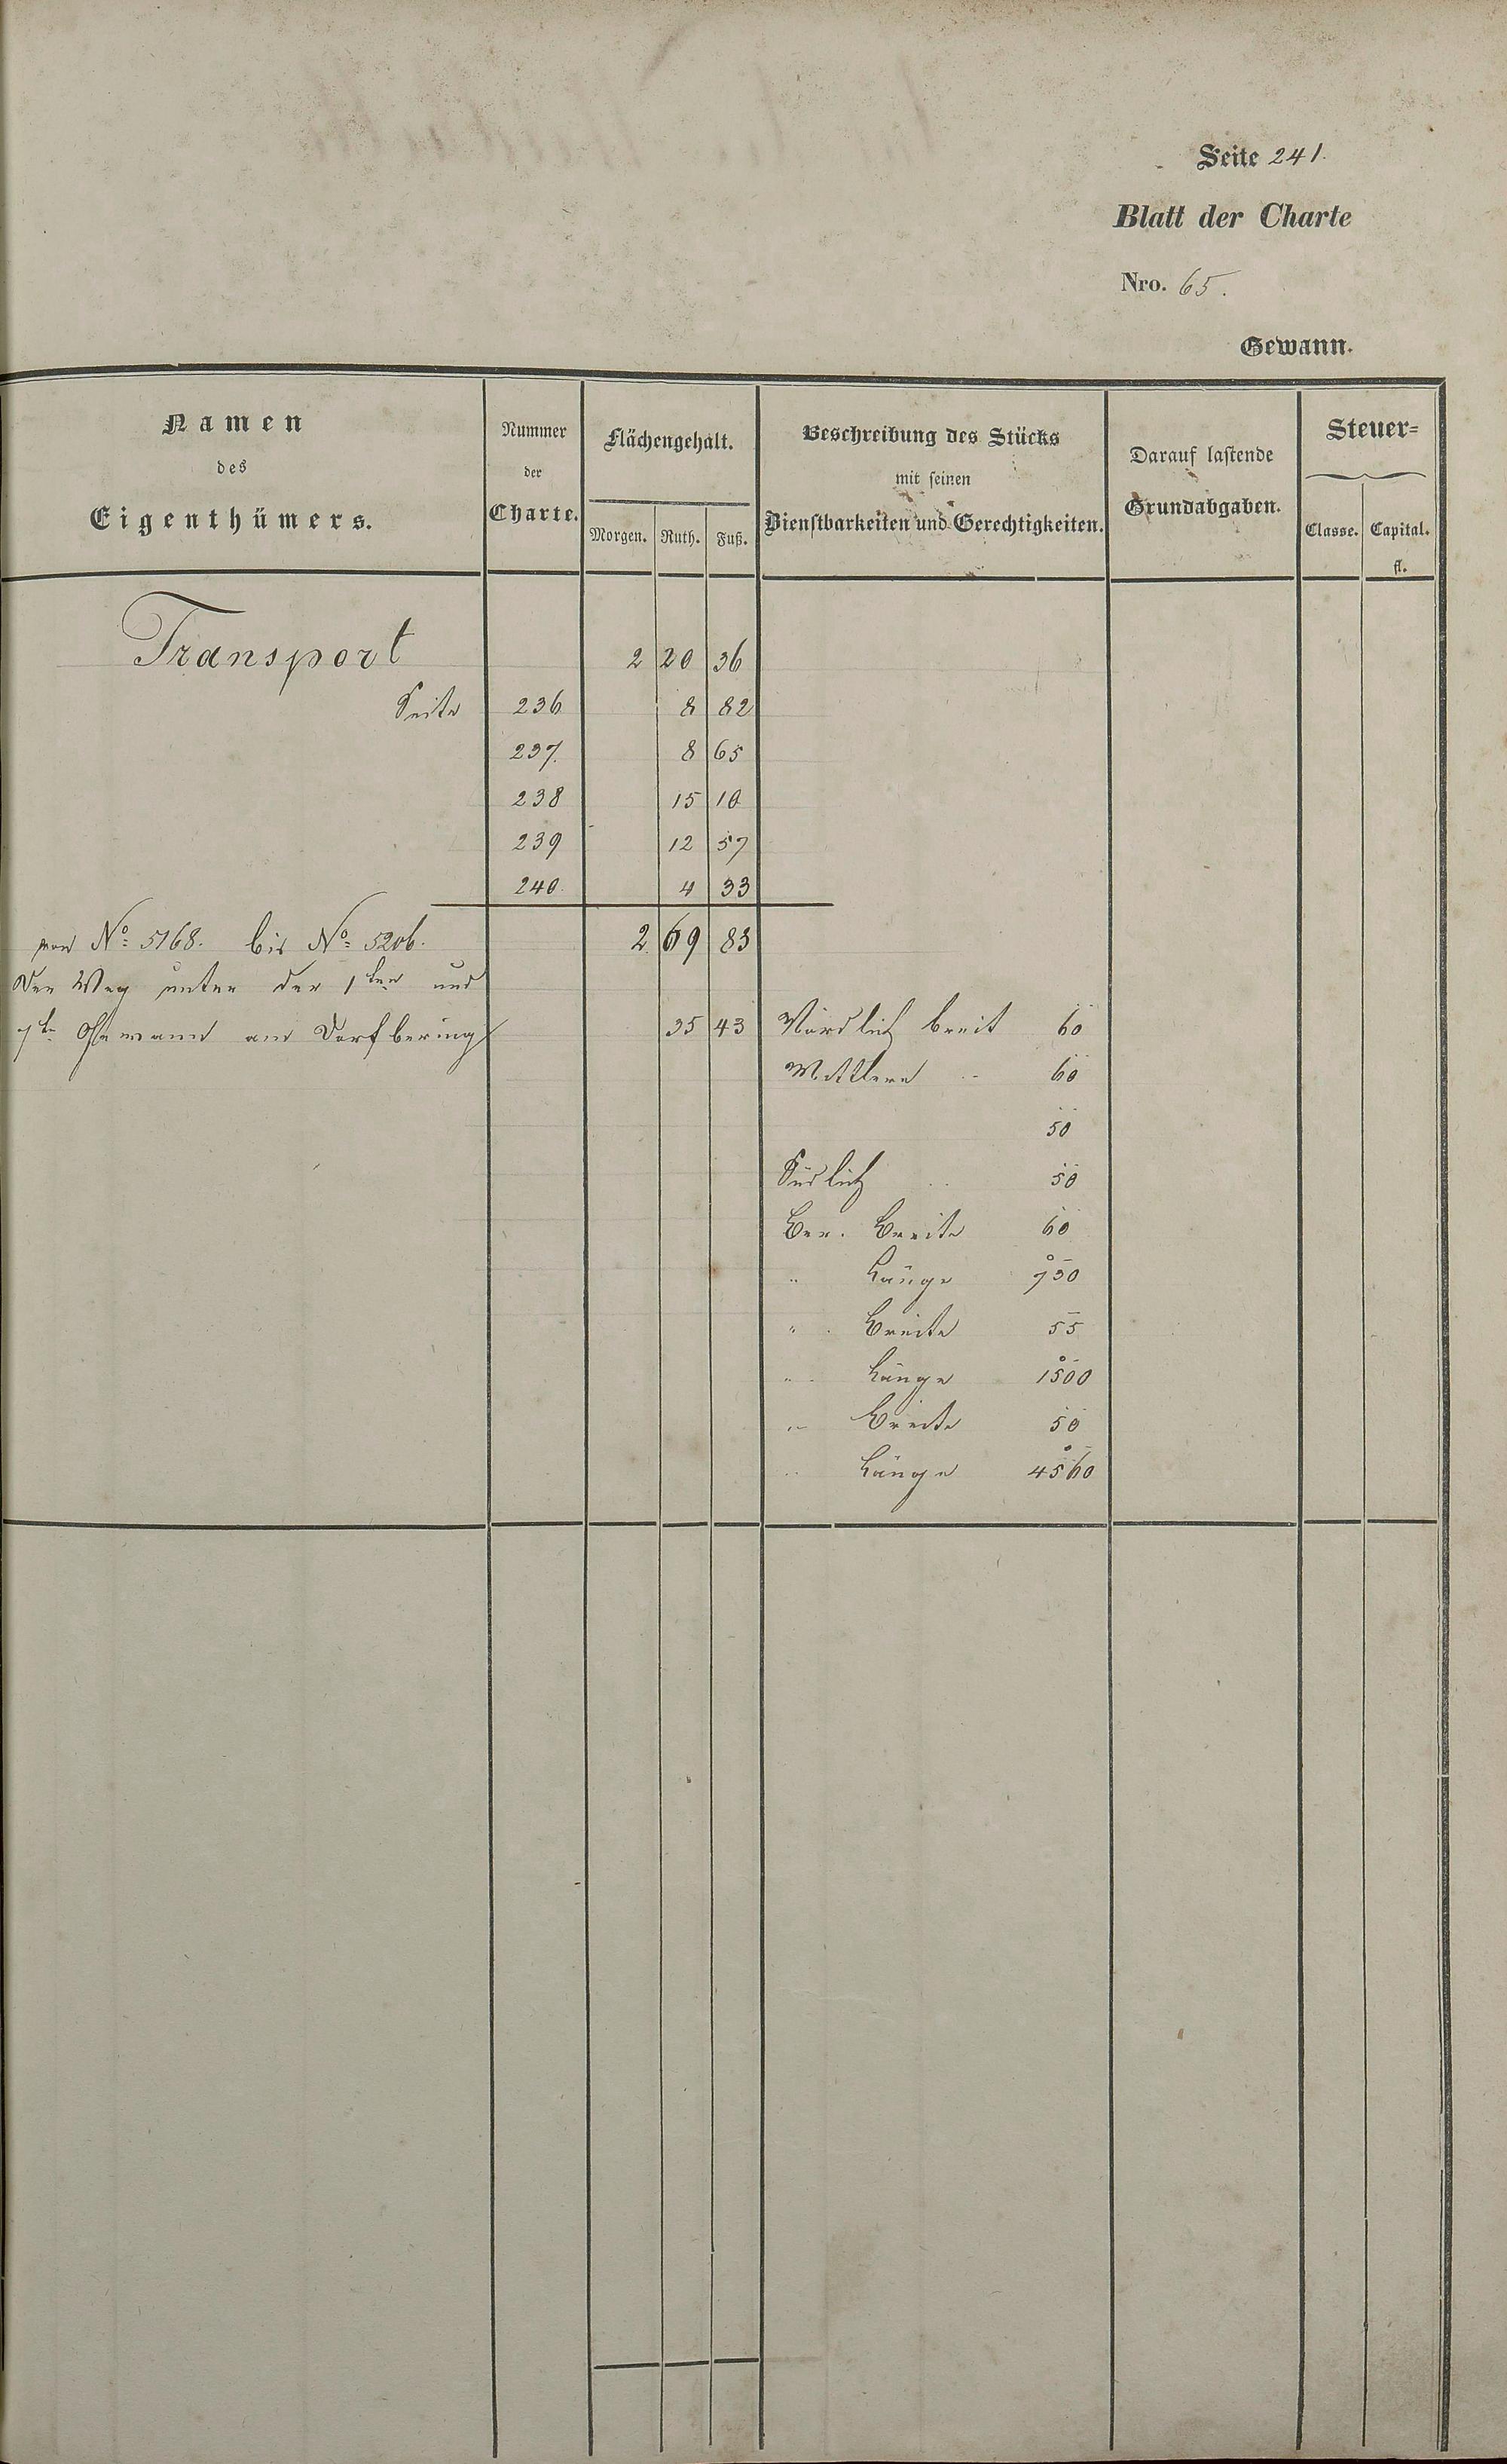 Seite 241.
Blatt der Charte
Nro. 65.
Gewann.
Namen
des
Eigenthümers.
Nummer
der
Charte.
Flächengehalt.
Morgen. Ruth. Fuß.
Beschreibung des Stücks
mit seinen
Dienstbarkeiten und Gerechtigkeiten.
Darauf lastende
Grundabgaben.
Steuer=
Classe. Capital.
fl.
Transport 2 20 36
Seite 236 8 82
237. 8 65
238 15 10
239 12 57
240. 4 33
von No: 5168. bis No: 5206. 2 69 83
Der Weg unter der 1ten und
7te Gewann am Dorfbering 35 43 Nördlich breit 60
Mittlere " 60
50
Südlich " 50
Ber. Breite 60
" Länge 730
" Breite 55
" Länge 1500
" Breite 50
" Länge 4560